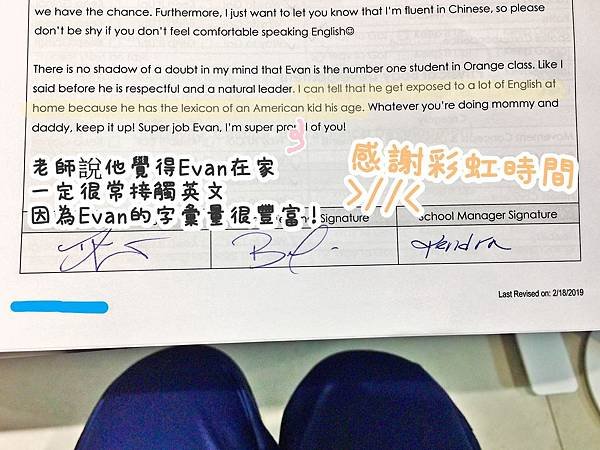 we have the chance. Furthermore, I just want to let you know that I'm fluent in Chinese, so please
don't be shy if you don't feel comfortable speaking English☺
There is no shadow of a doubt in my mind that Evan is the number one student in Orange class. Like I
said before he is respectful and a natural leader. I can tell that he get exposed to a lot of English at
home because he has the lexicon of an American kid his age. Whatever you're doing mommy and
daddy, keep it up! Super job Evan, I'm super of you!
感謝彩虹時間
>///<
老師說他覺得Evan在家
一定很常接觸英文
因為Evan的字彙量很豐富!
Signature
School Manager Signature
Kendra
Last Revised on: 2/18/2019